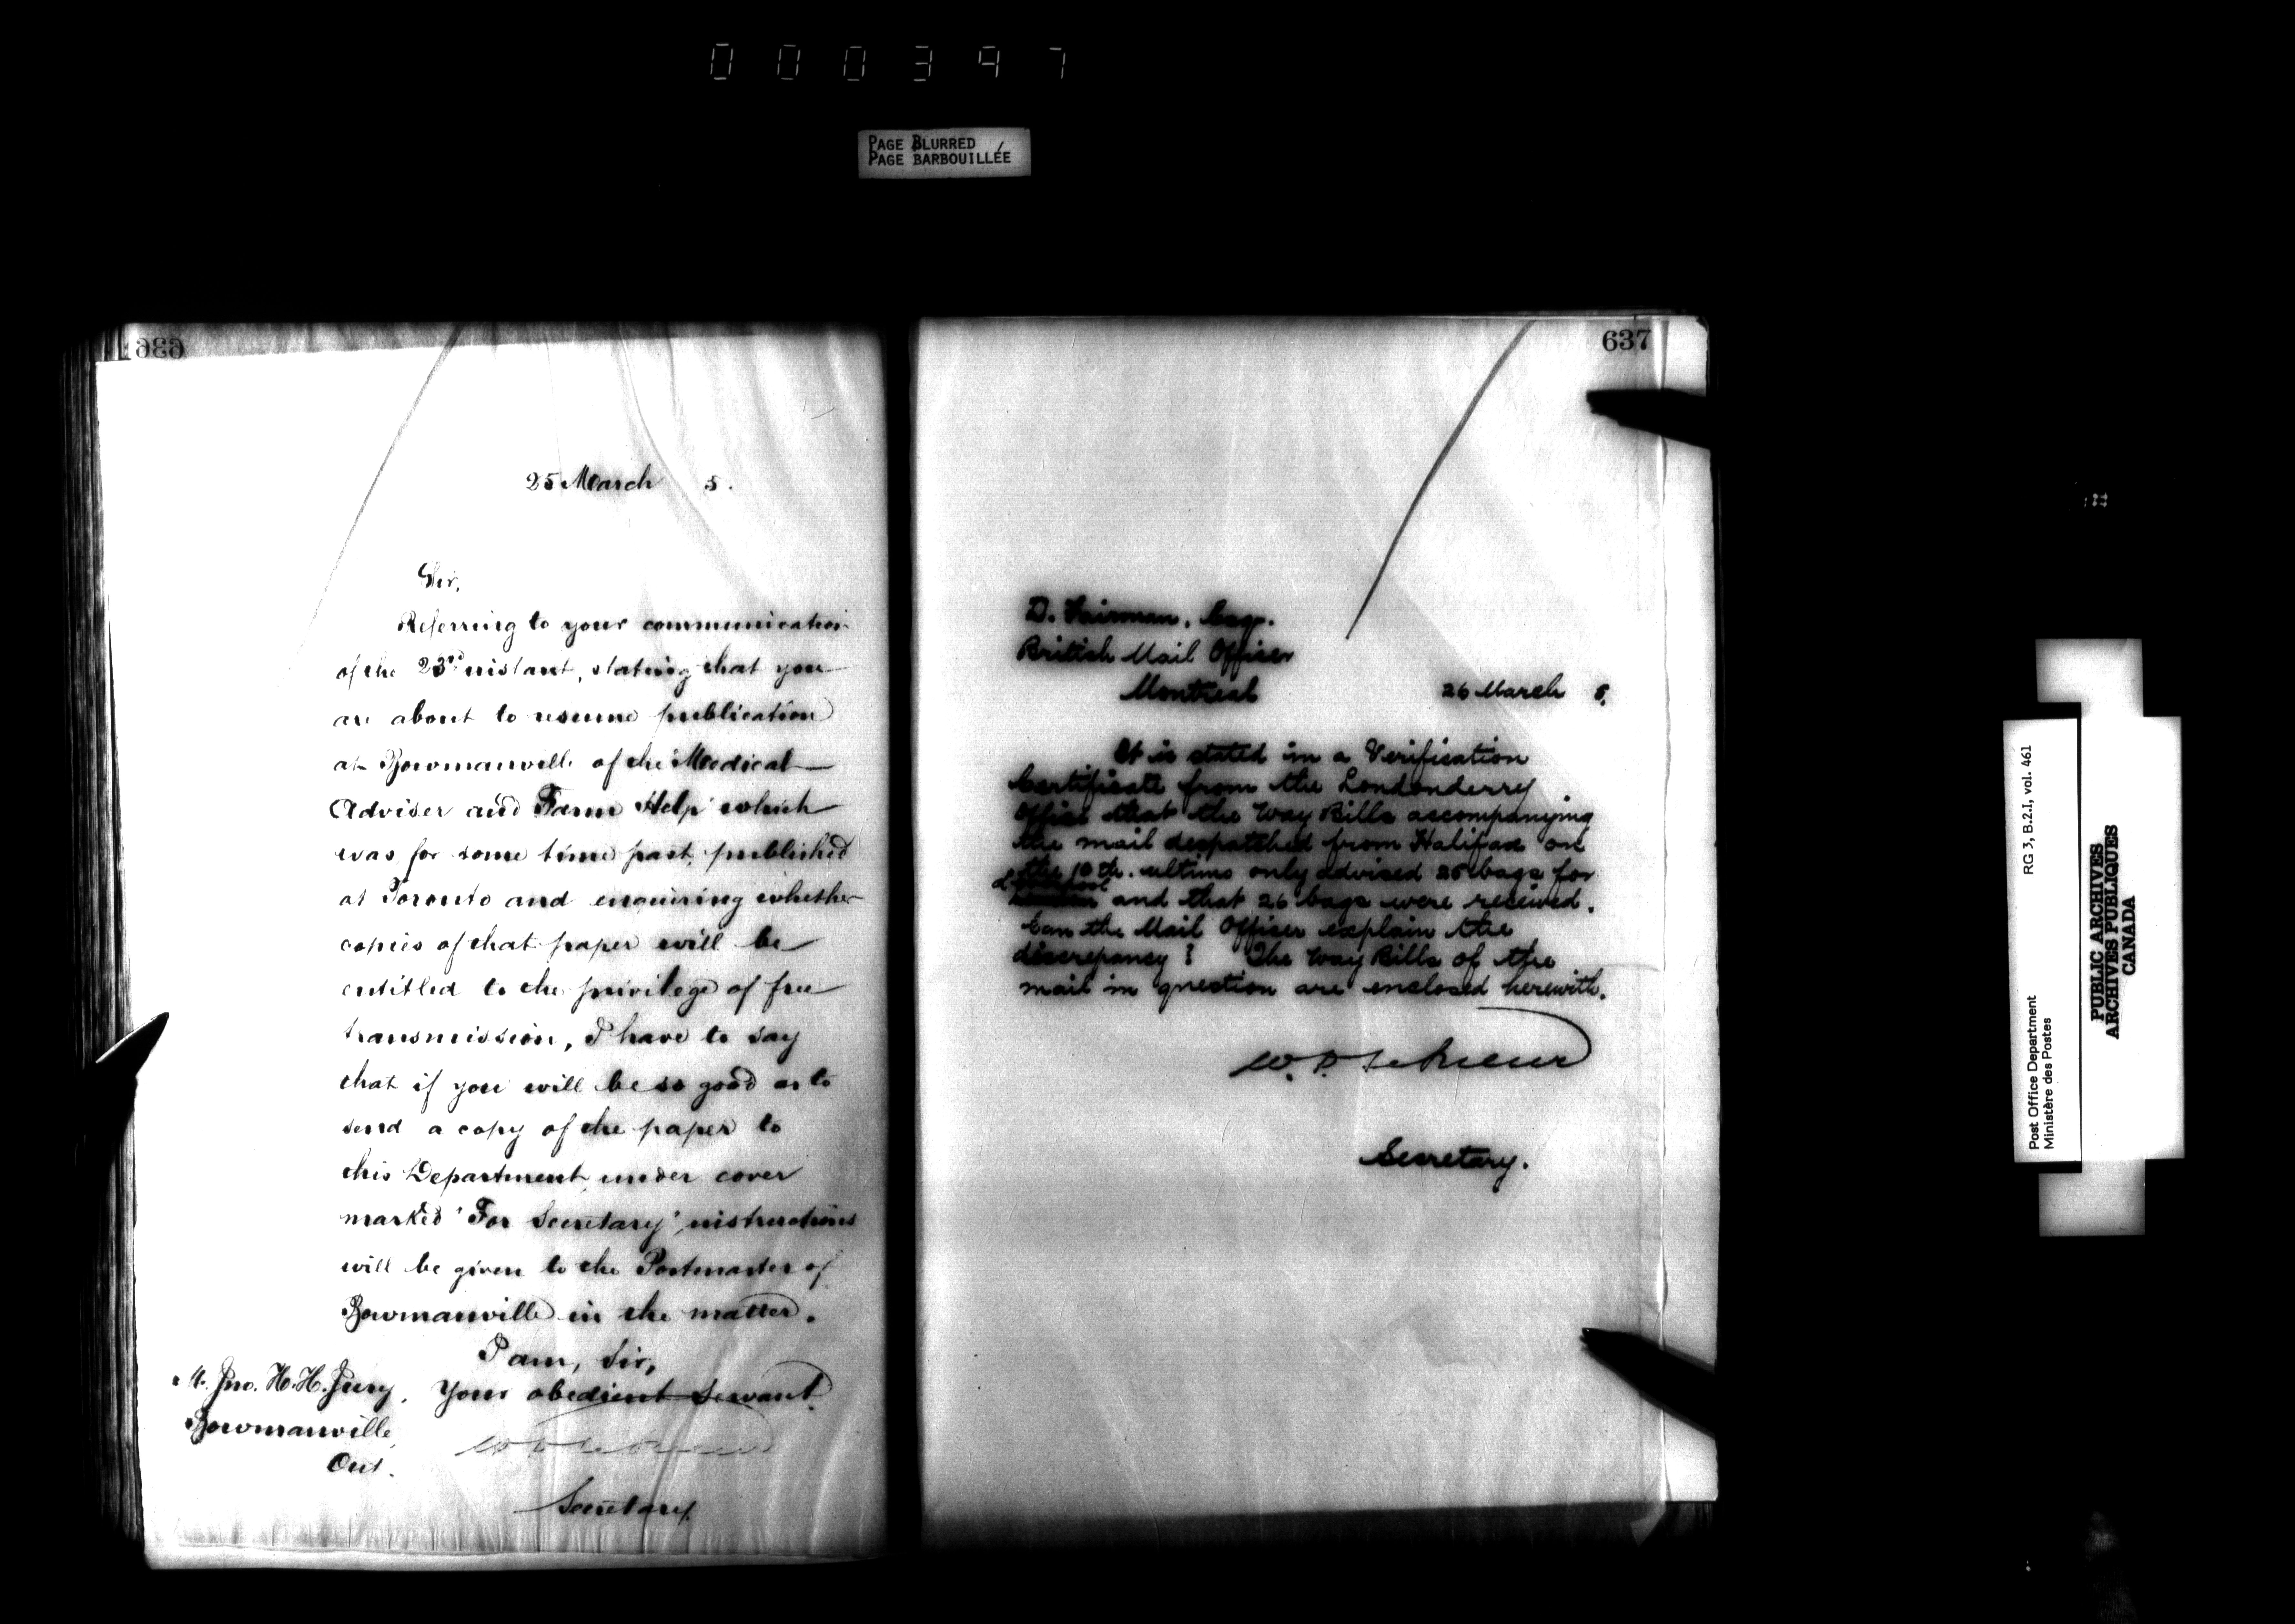 000397
PAGE BLURRED
PAGE BARBOUILLÉE
636
25 March 5.
Sir,
Referring to your communication
of the 23rd instant, stating that you
are about to resume publication
at Bowmanville of the Medical
Adviser and Farm Help which
was for some time past published
at Toronto and enquiring whether
copies of that paper will be
entitled to the privilege of free
transmission, I have to say
that if you will be so good as to
send a copy of the paper to
this Department under cover
marked "For Secretary", instructions
will be given to the Postmaster of
Bowmanville in the matter.
I am, Sir,
Your obedient Servant.
Secretary.
Jno. H. H. Jury,
Bowmanville,
Ont.
637
D. Fairman, Esqr.
British Mail Officer
Montreal
26 March 5.
It is stated in a Verification
Certificate from the Londonderry
Office that the Way Bills accompanying
the mail despatched from Halifax on
the 10th. ultimo only advised 25 bags for
Liverpool and that 26 bags were received.
Can the Mail Officer explain the
discrepancy? The Way Bills of the
mail in question are enclosed herewith.
Secretary.
Post Office Department
Ministère des Postes
RG 3, B.2.1, vol. 461
PUBLIC ARCHIVES
ARCHIVES PUBLIQUES
CANADA